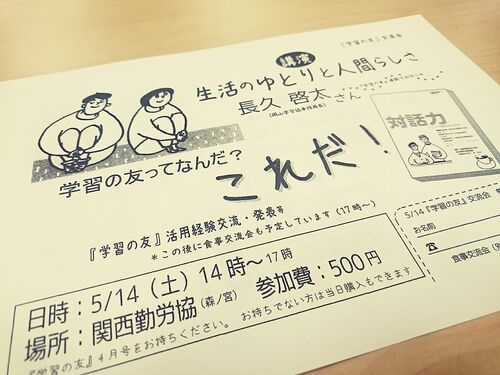 『学習の友』交流会
講演
生活のゆとりと人間らしさ
長久 啓太さん
(岡山学習協事務局長)
対話力
学習の友ってなんだ？
これだ！
『学習の友』活用経験交流・発表等
*この後に食事交流会も予定しています（17時～）
日時：5/14（土）14時～17時
場所：関西勤労協（森ノ宮） 参加費：500円
『学習の友』4月号をお持ちください。 お持ちでない方は当日購入もできます
5/14『学習の友』交流会
お名前
☎
食事交流会